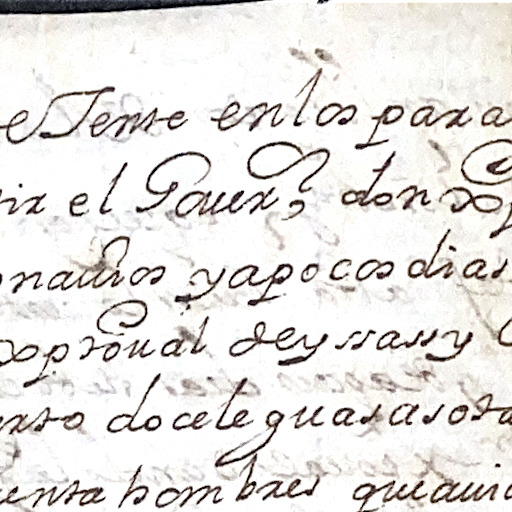 e Tente en los para
ir el Gouerr don xp
nauios yapocos dias
xptoual deyssassy
erto doce leguas asota
uenta hombres queaui